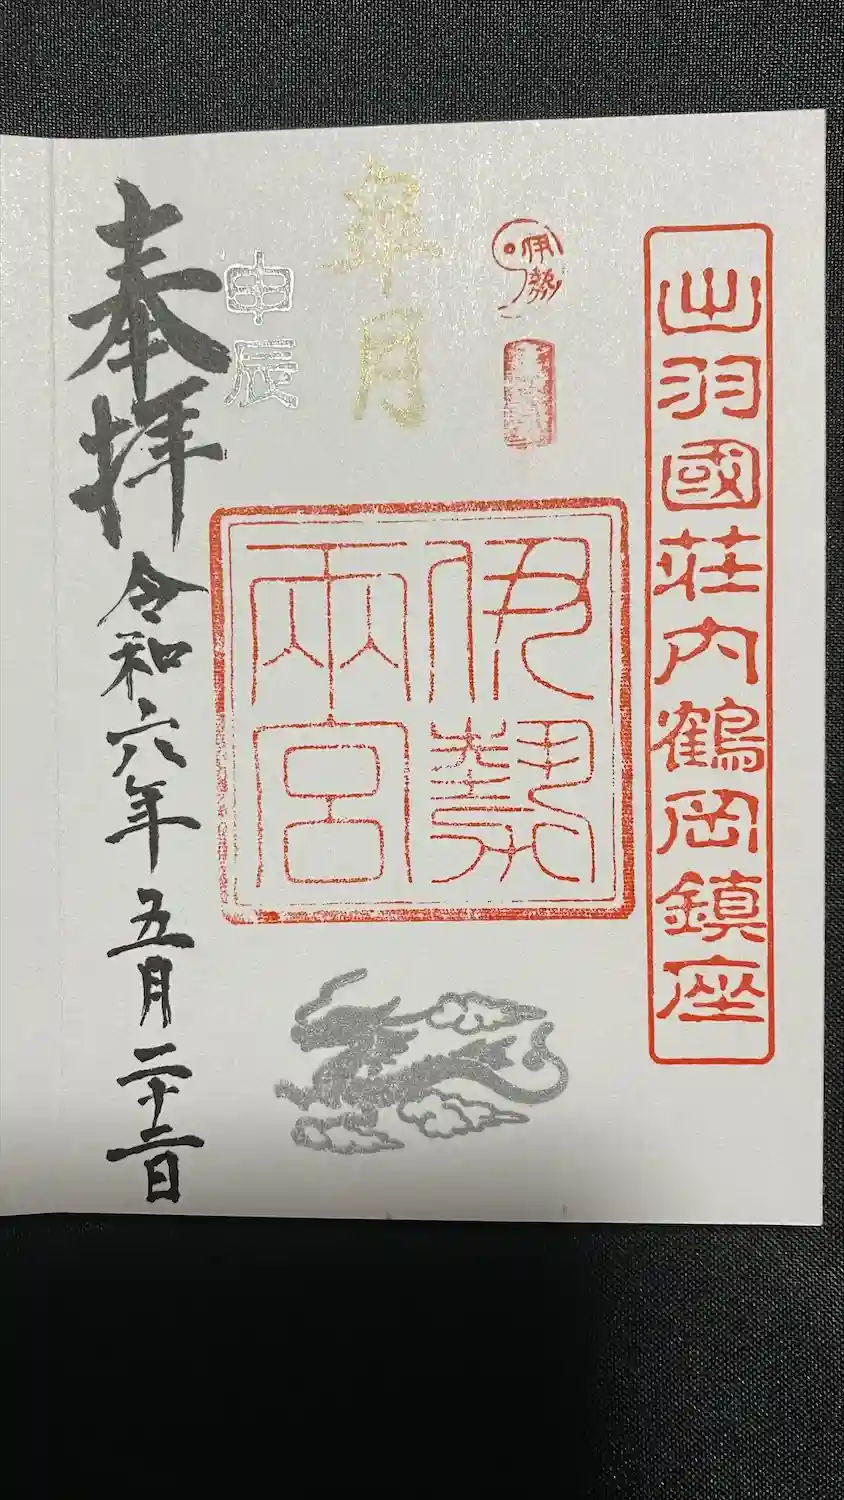 出羽國荘内鶴岡鎮座
伊勢
皐月
伊勢
兩宮
甲辰
奉拝
令和六年五月二十二日